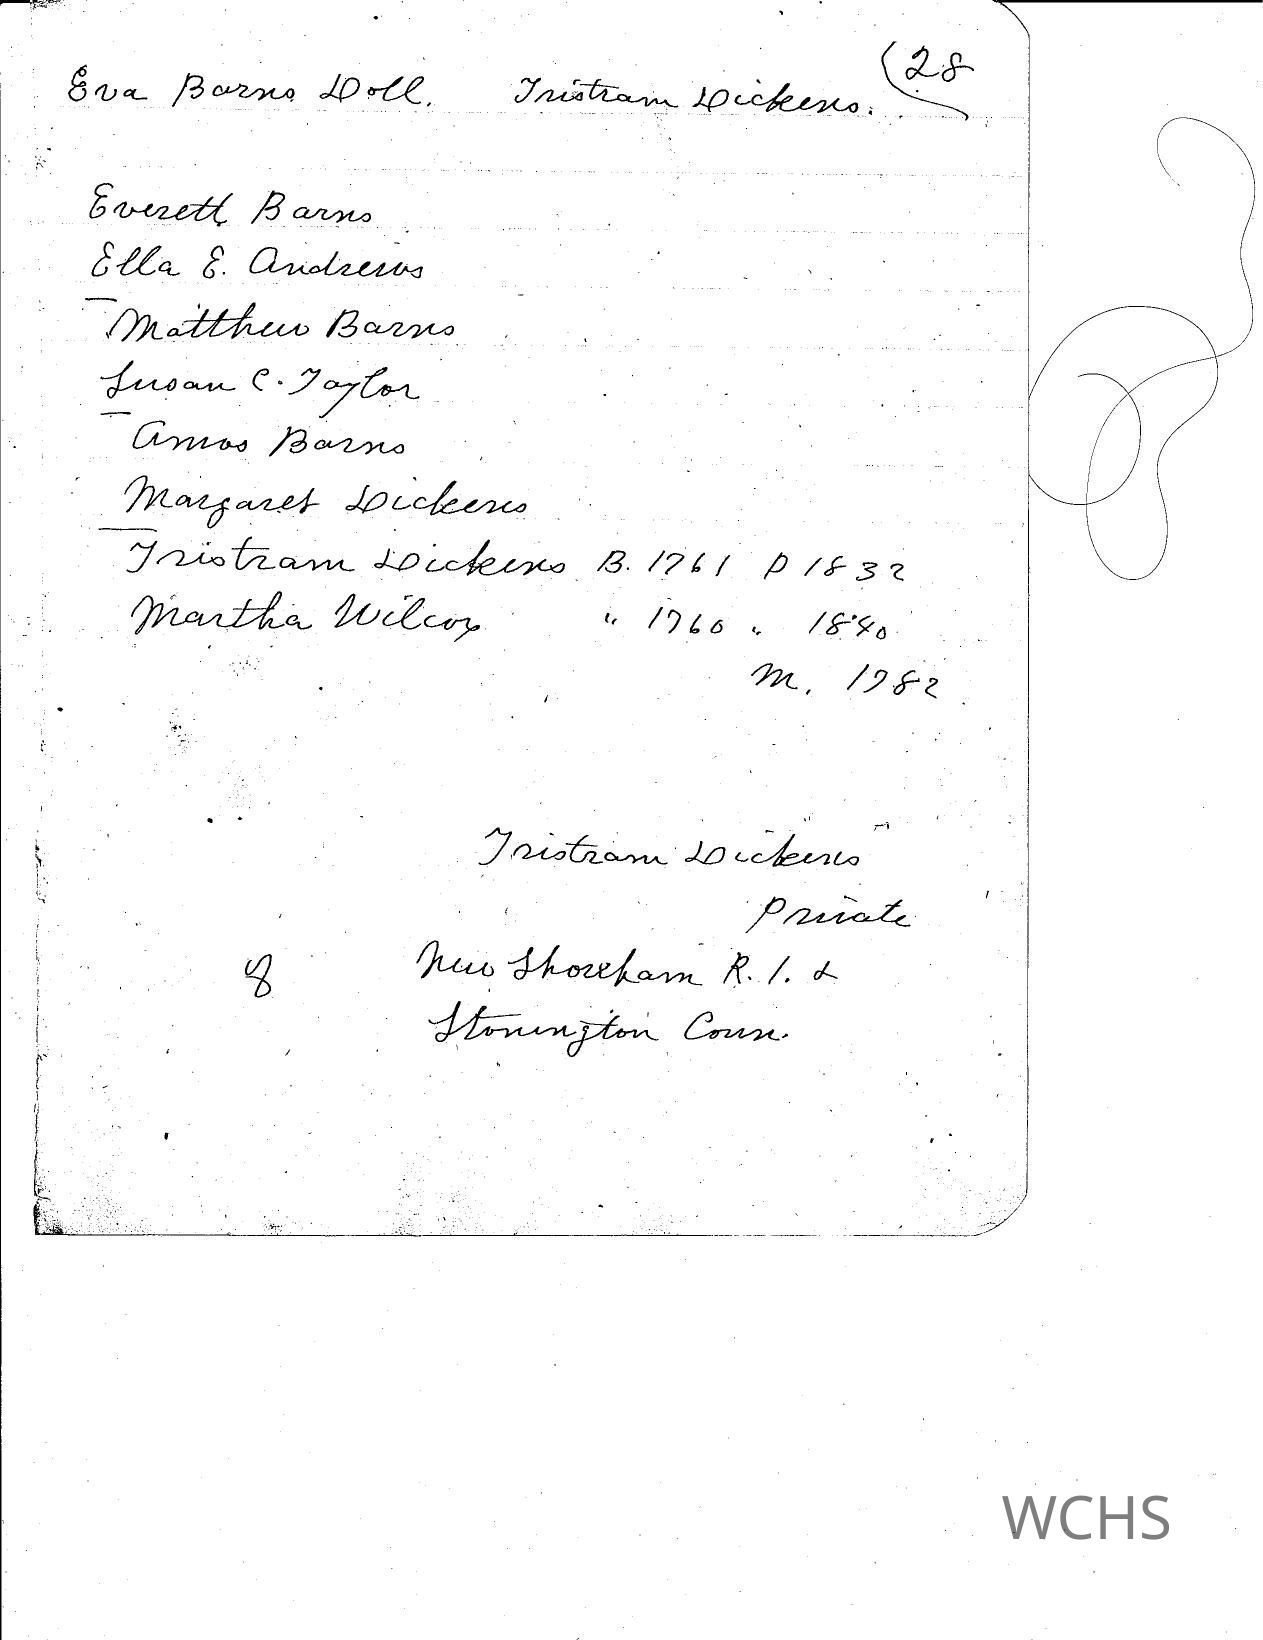 28
Eva Barns Doll. Tristram Dickens.
Everett Barns
Ella E. Andrews
Matthew Barns
Susan C. Taylor
Amos Barns
Margaret Dickens
Tristram Dickens B. 1761 D 1832
Martha Wilcox " 1760 " 1840
M. 1782
Tristram Dickens
Private
8 New Shoreham R.I. &
Stonington Conn.
WCHS